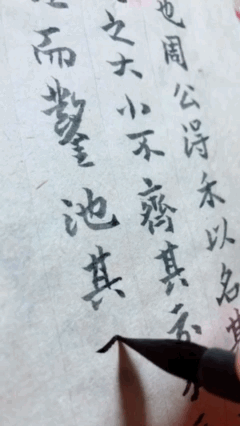 也周公得禾以名其
之大小不齊其示
而鑿池其